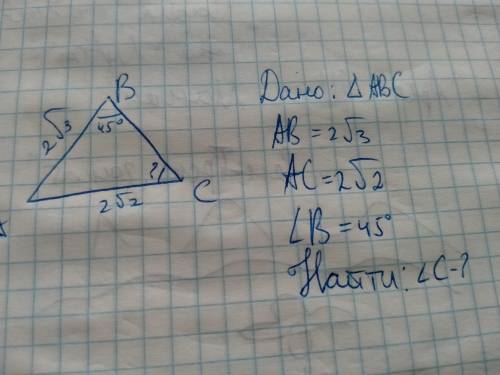 B
2√3
45°
?
C
2√2
A
Дано: △ABC
AB = 2√3
AC = 2√2
∠B = 45°
Найти: ∠C - ?